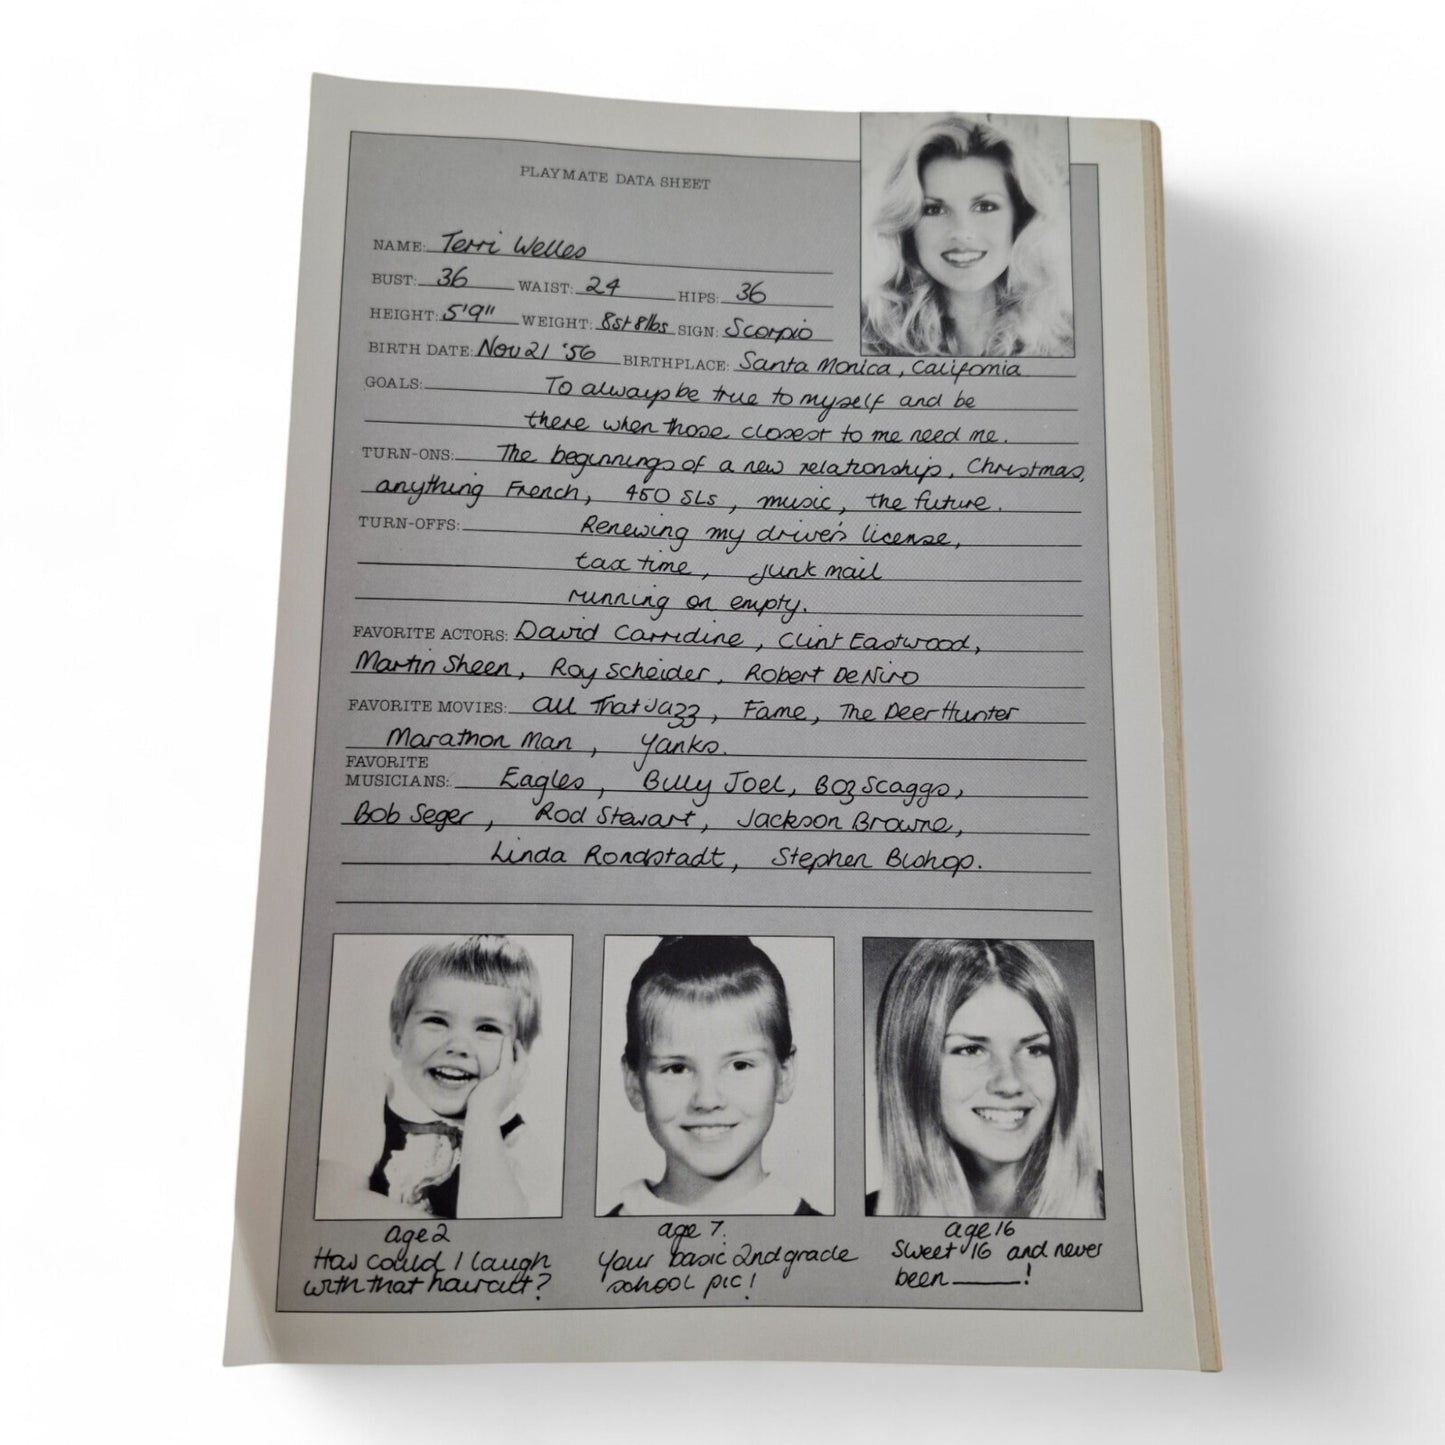 PLAYMATE DATA SHEET
NAME: Terri Welles
BUST: 36 WAIST: 24 HIPS: 36
HEIGHT: 5'9" WEIGHT: 8st 8lbs SIGN: Scorpio
BIRTH DATE: Nov 21 '56 BIRTHPLACE: Santa Monica, California
GOALS: To always be true to myself and be
there when those closest to me need me.
TURN-ONS: The beginnings of a new relationship, Christmas,
anything French, 450 SLs, music, the future.
TURN-OFFS: Renewing my driver's license,
tax time, junk mail
running on empty.
FAVORITE ACTORS: David Carridine, Clint Eastwood,
Martin Sheen, Roy Scheider, Robert De Niro
FAVORITE MOVIES: All That Jazz, Fame, The Deer Hunter
Marathon Man, Yanks.
FAVORITE
MUSICIANS: Eagles, Billy Joel, Boz Scaggs,
Bob Seger, Rod Stewart, Jackson Browne,
Linda Rondstadt, Stephen Bishop.
age 2
How could I laugh
with that haircut?
age 7.
Your basic 2nd grade
school pic!
age 16
Sweet 16 and never
been ____!